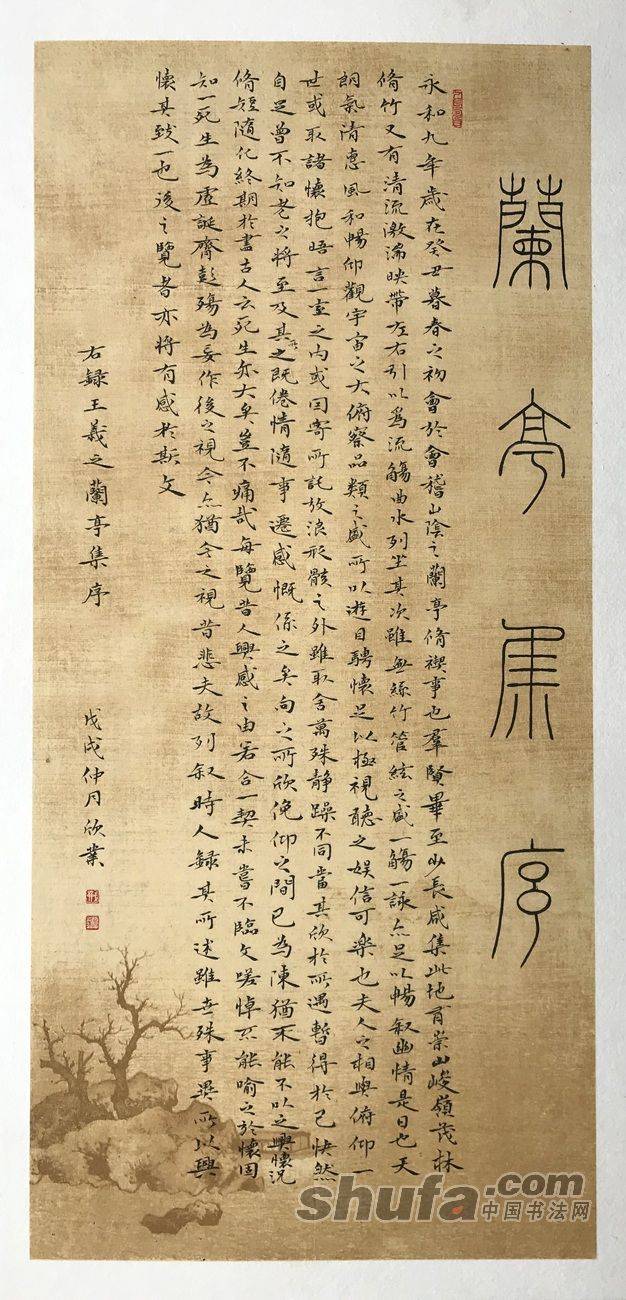 蘭亭集序
永和九年歲在癸丑暮春之初會於會稽山陰之蘭亭脩禊事也羣賢畢至少長咸集此地有崇山峻嶺茂林
脩竹又有清流激湍映帶左右引以為流觴曲水列坐其次雖無絲竹管絃之盛一觴一詠亦足以暢敘幽情是日也天
朗氣清惠風和暢仰觀宇宙之大俯察品類之盛所以遊目騁懷足以極視聽之娛信可樂也夫人之相與俯仰一
世或取諸懷抱晤言一室之內或因寄所託放浪形骸之外雖取舍萬殊靜躁不同當其欣於所遇暫得於己快然
自足曾不知老之將至及其所之既倦情隨事遷感慨係之矣向之所欣俛仰之間已為陳猶不能不以之興懷況
脩短隨化終期於盡古人云死生亦大矣豈不痛哉每覽昔人興感之由若合一契未嘗不臨文嗟悼不能喻之於懷固
知一死生為虛誕齊彭殤為妄作後之視今亦猶今之視昔悲夫故列敘時人錄其所述雖世殊事異所以興
懷其致一也後之覽者亦將有感於斯文
右錄王羲之蘭亭集序 戊戌仲月欣業
shufa.com
中国书法网